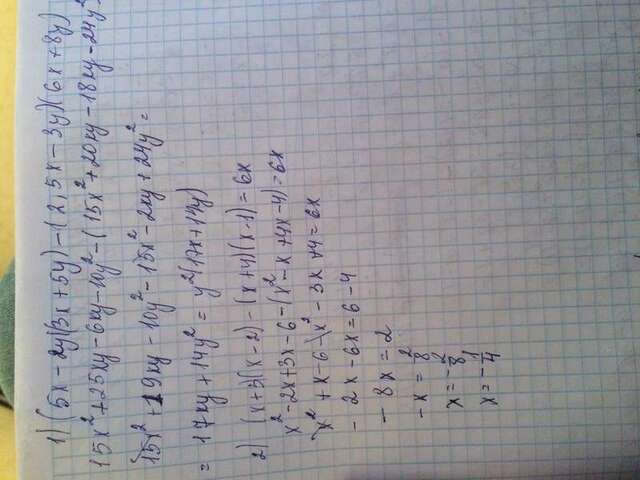 1) (5x - 2y)(3x + 5y) - (2,5x - 3y)(6x + 8y)
15x² + 25xy - 6xy - 10y² - (15x² + 20xy - 18xy - 24y²
15x² + 19xy - 10y² - 15x² - 2xy + 24y² =
= 17xy + 14y² = y²(17x + 14y)
2) (x+3)(x-2) - (x+4)(x-1) = 6x
x² - 2x + 3x - 6 - (x² - x + 4x - 4) = 6x
x² + x - 6 - x² - 3x + 4 = 6x
- 2x - 6x = 6 - 4
- 8x = 2
-x = 2/8
x = -2/8
x = -1/4